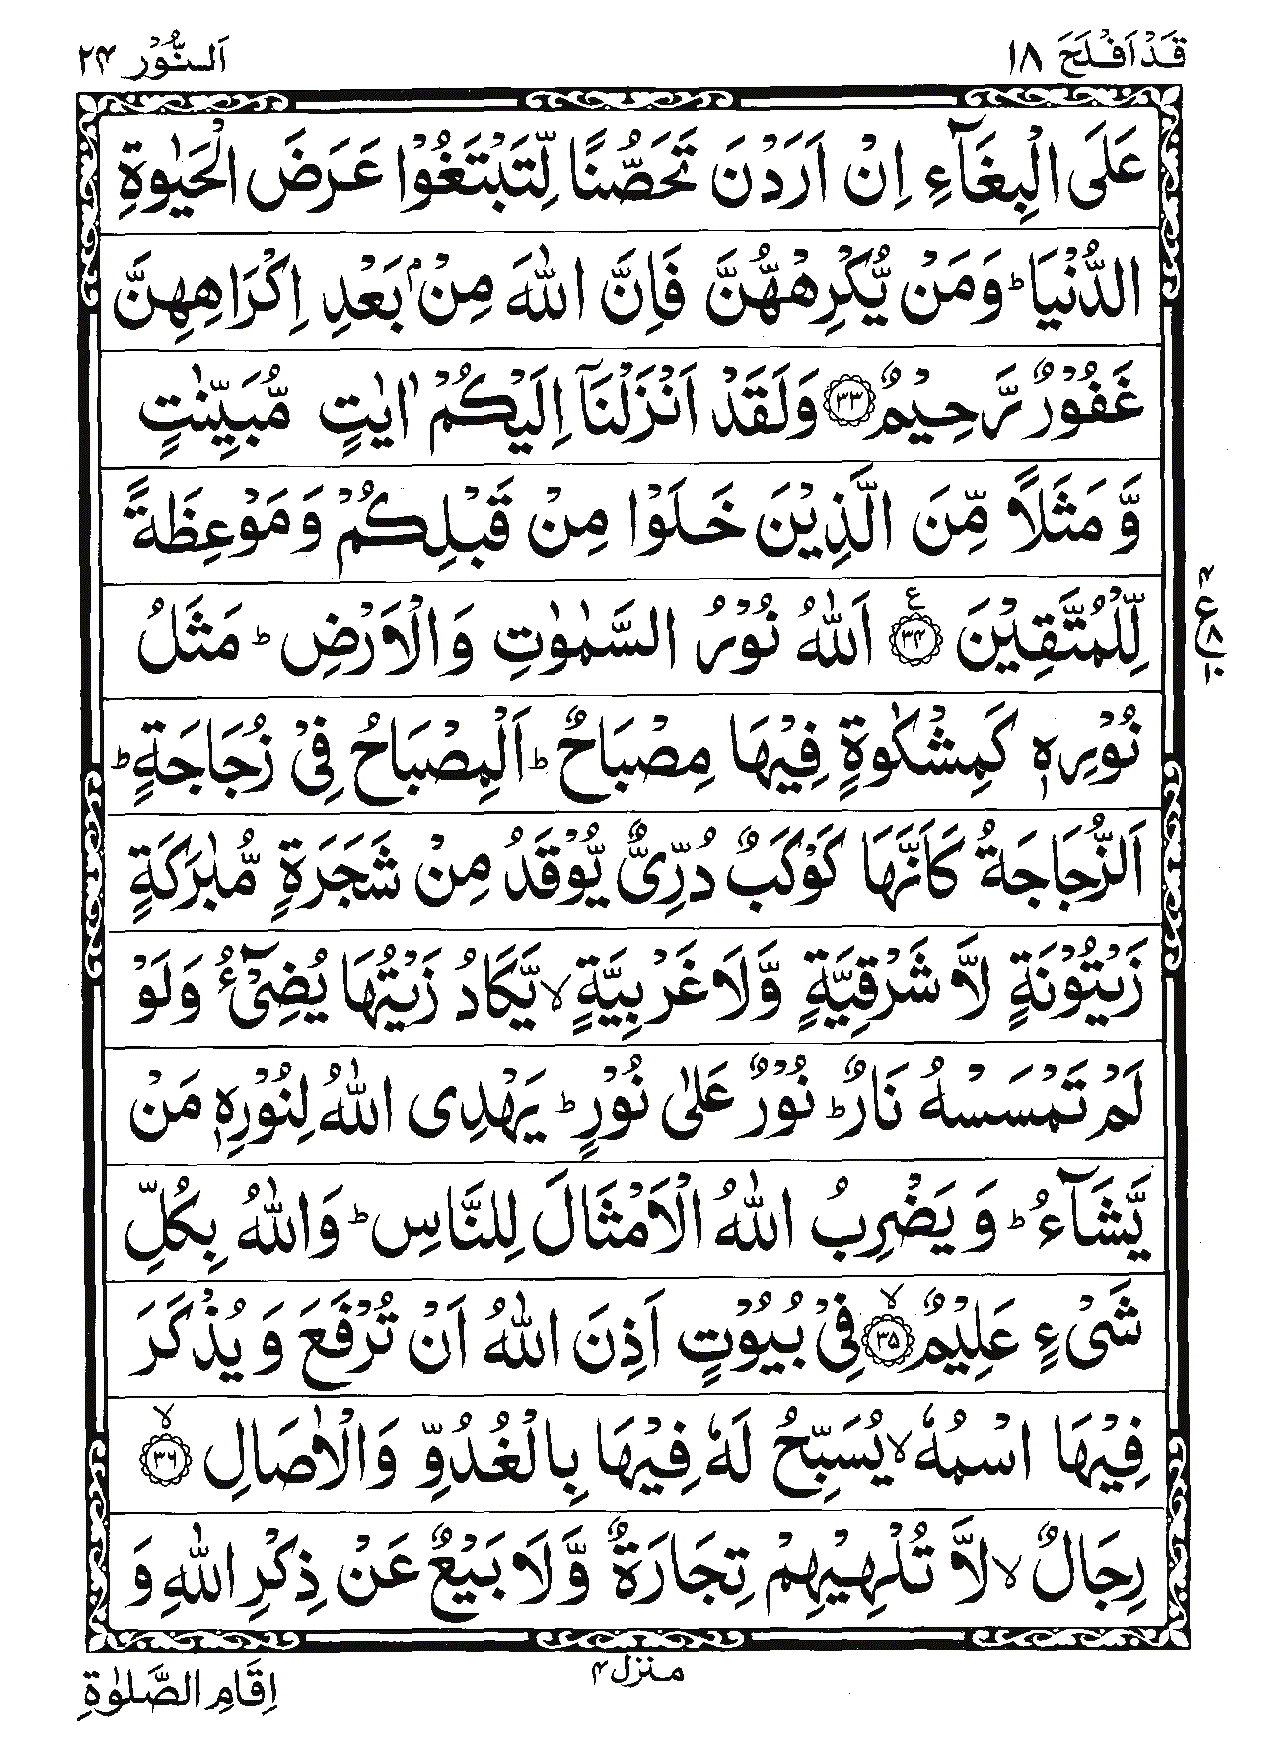 قَدْ اَفْلَحَ ١٨
اَلنُّوْر ٢٤
عَلَى الْبِغَآءِ اِنْ اَرَدْنَ تَحَصُّنًا لِّتَبْتَغُوْا عَرَضَ الْحَيٰوةِ
الدُّنْيَا ؕ وَمَنْ يُّكْرِهْهُّنَّ فَاِنَّ اللّٰهَ مِنْۢ بَعْدِ اِكْرَاهِهِنَّ
غَفُوْرٌ رَّحِيْمٌ ﴿٣٣﴾ وَلَقَدْ اَنْزَلْنَاۤ اِلَيْكُمْ اٰيٰتٍ مُّبَيِّنٰتٍ
وَّ مَثَلًا مِّنَ الَّذِيْنَ خَلَوْا مِنْ قَبْلِكُمْ وَ مَوْعِظَةً
لِّلْمُتَّقِيْنَ ﴿٣٤﴾ ع اَللّٰهُ نُوْرُ السَّمٰوٰتِ وَ الْاَرْضِ ؕ مَثَلُ
نُوْرِهٖ كَمِشْكٰوةٍ فِيْهَا مِصْبَاحٌ ؕ اَلْمِصْبَاحُ فِىْ زُجَاجَةٍ ؕ
اَلزُّجَاجَةُ كَاَنَّهَا كَوْكَبٌ دُرِّىٌّ يُّوْقَدُ مِنْ شَجَرَةٍ مُّبٰرَكَةٍ
زَيْتُوْنَةٍ لَّا شَرْقِيَّةٍ وَّلَا غَرْبِيَّةٍ ۙ يَّكَادُ زَيْتُهَا يُضِىْٓءُ وَلَوْ
لَمْ تَمْسَسْهُ نَارٌ ؕ نُوْرٌ عَلٰى نُوْرٍ ؕ يَهْدِى اللّٰهُ لِنُوْرِهٖ مَنْ
يَّشَآءُ ؕ وَ يَضْرِبُ اللّٰهُ الْاَمْثَالَ لِلنَّاسِ ؕ وَاللّٰهُ بِكُلِّ
شَىْءٍ عَلِيْمٌ ﴿٣٥﴾ ۙ فِىْ بُيُوْتٍ اَذِنَ اللّٰهُ اَنْ تُرْفَعَ وَ يُذْكَرَ
فِيْهَا اسْمُهٗ ۙ يُسَبِّحُ لَهٗ فِيْهَا بِالْغُدُوِّ وَ الْاٰصَالِ ﴿٣٦﴾ ۙ
رِجَالٌ ۙ لَّا تُلْهِيْهِمْ تِجَارَةٌ وَّ لَا بَيْعٌ عَنْ ذِكْرِ اللّٰهِ وَ
٤
ع
٨
١٠
منزل ٤
اِقَامِ الصَّلٰوةِ